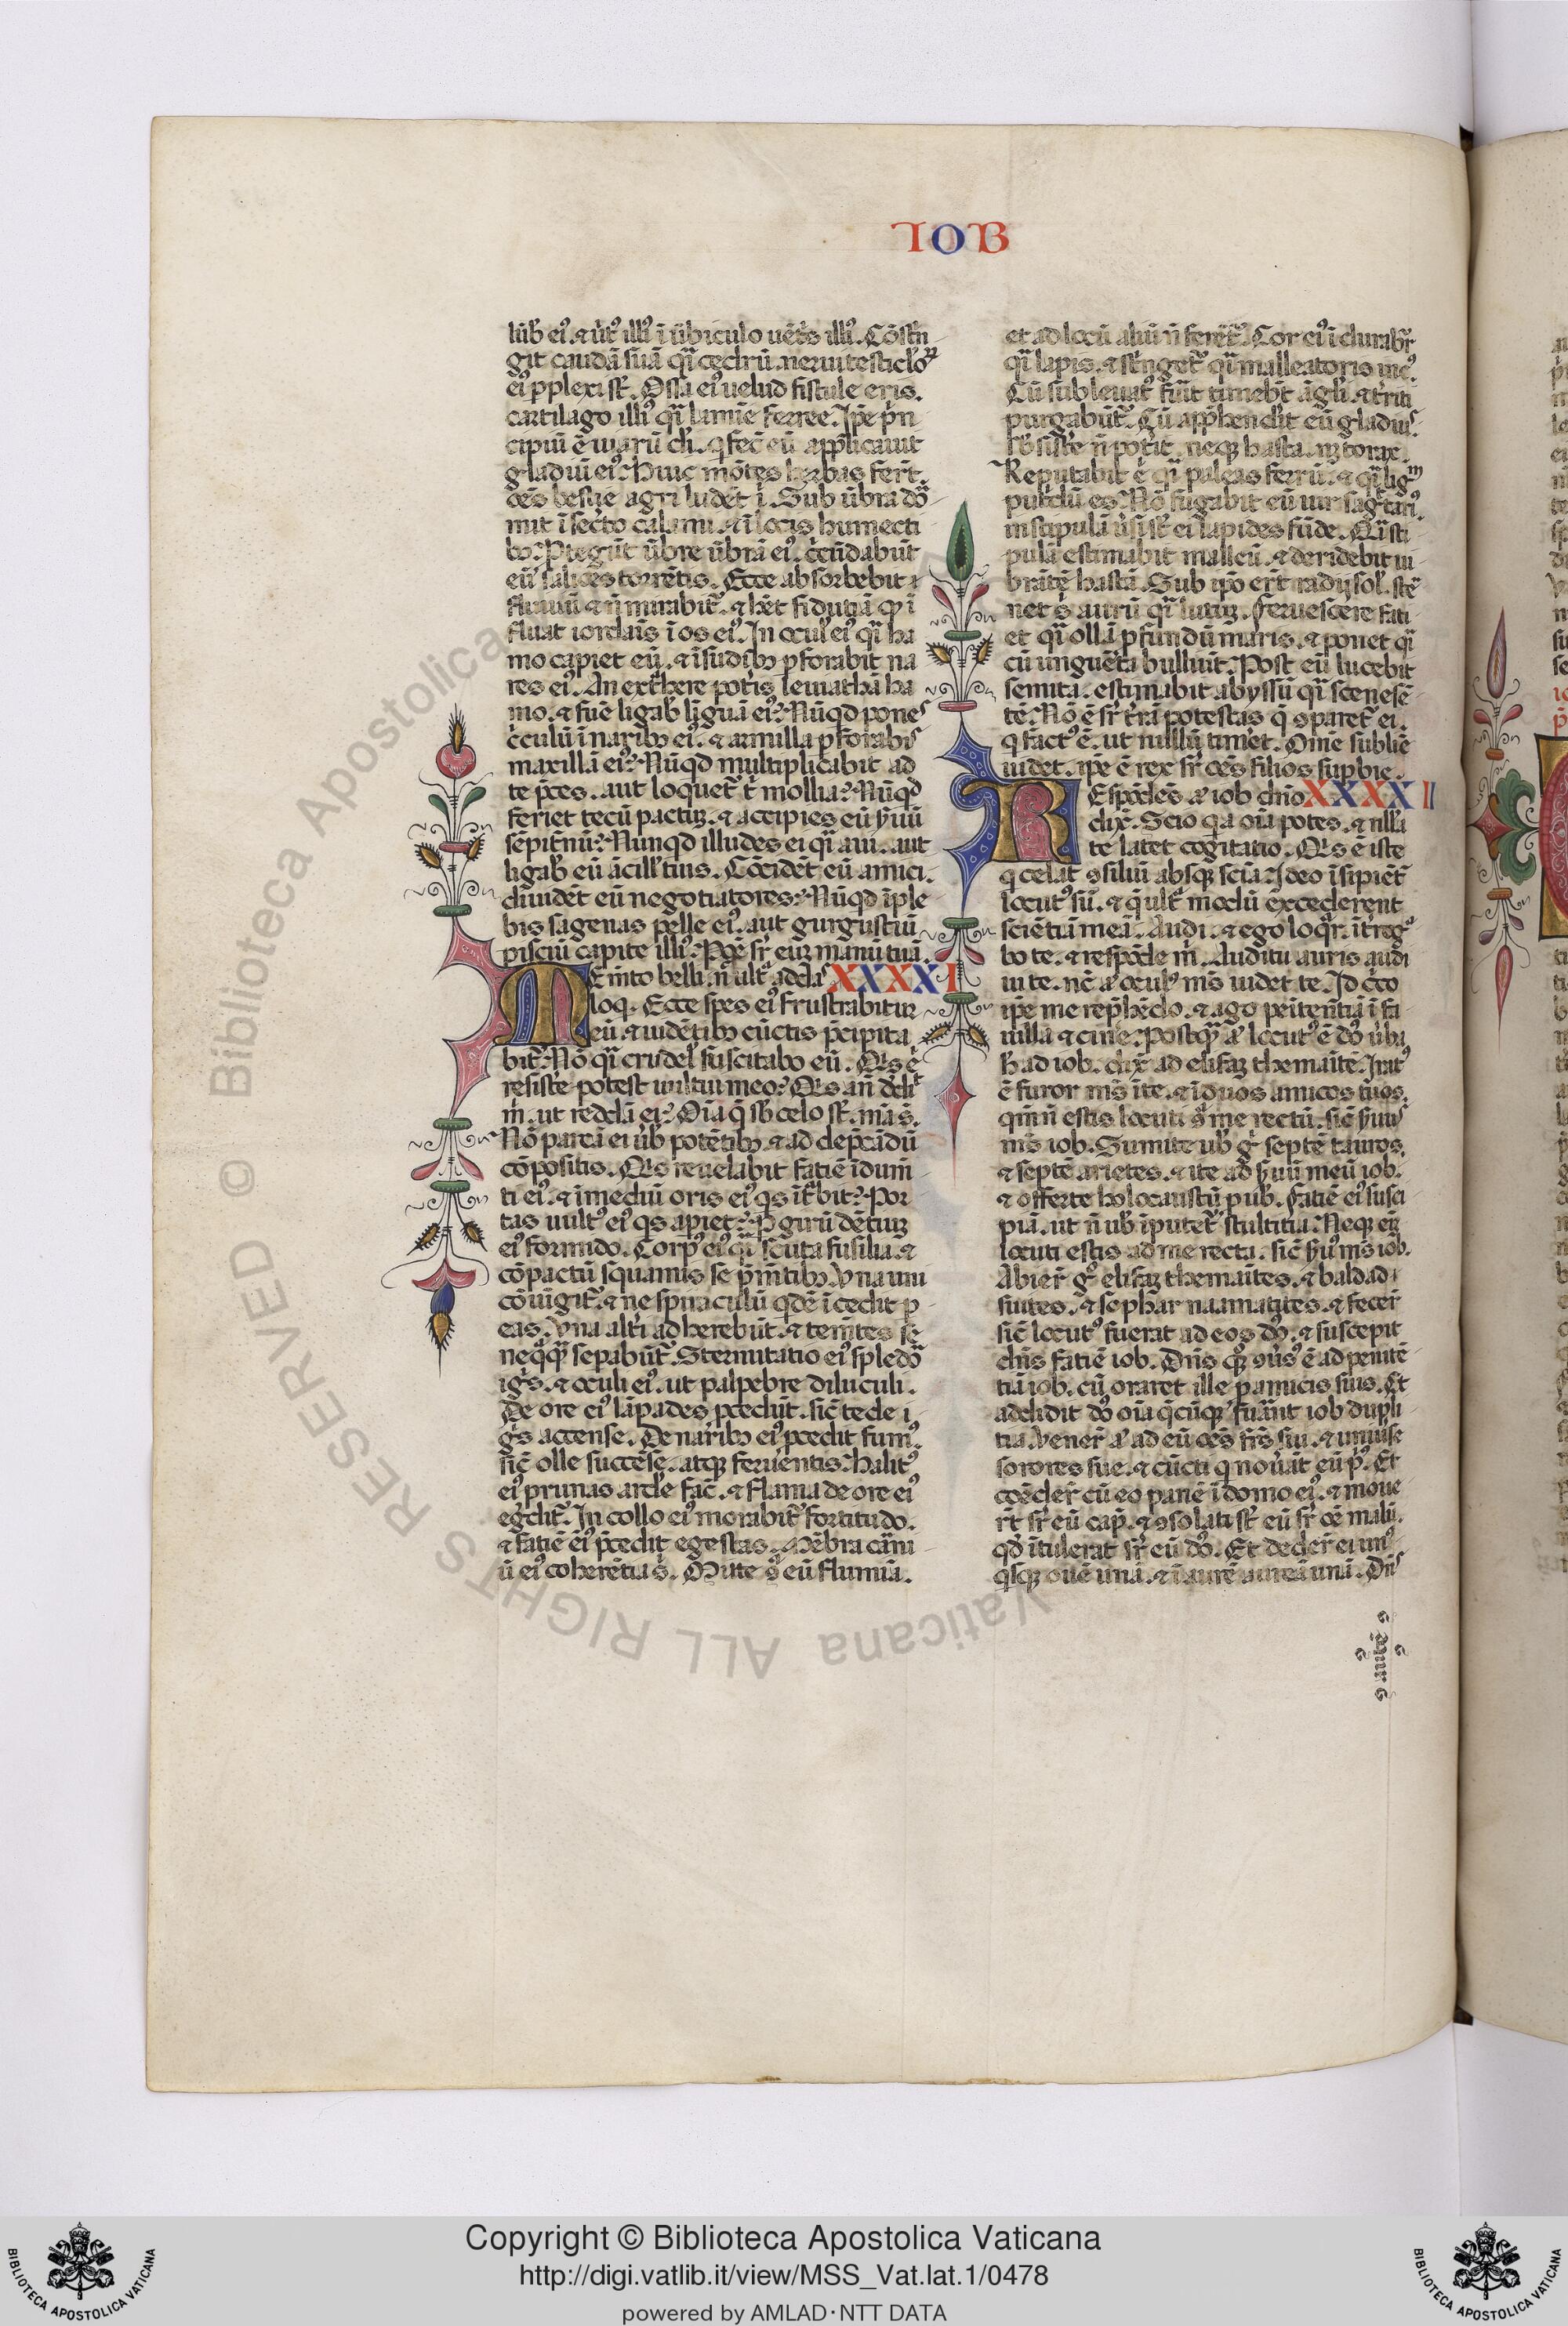 IOB
lūb' ei⁹. ⁊ ūt⁹ illi⁹ ī ūbiculo uēt̄s illi⁹. Cōst̄n
git caudā suā q̄ı cedrū. nerui testiclo⁊
ei⁹ pplexi st̄. Ossa ei⁹ uelud fistule eris.
cartilago illi⁹ q̄ı lamīe ferree. Ip̄e p̄n
cipiū ē uiarū d̄i. q̄ fec̄ eū applicauit
gladiū ei⁹. Huic mōtes herbas fer̄t.
oēs bestie agri ludēt ı̇. Sub ūbra dō
mit ī sec̄to calami. ⁊ ī locis humecti
bȝ. Ptegūt ūbre ūbrā ei⁹. c̄cūdabūt
eū salices torrētis. Ecce absorbebit
fluuiū ⁊ n̄ mirabit̄. ⁊ h̄et fiduciā q̄ ī
fluat iordaīs ī os ei⁹. In ocul' ei⁹ q̄ı ha
mo capiet eū. ⁊ ī sudibȝ pforabit na
res ei⁹. An ext̄here pot̄is leuiathā ha
mo. ⁊ fūe ligab' līguā ei⁹? Nūqd pones
c̄culū ī naribȝ ei⁹. ⁊ armilla pforabis
maxillā ei⁹? Nūqd multiplicabit ad
te p̄ces. aut loquet̄ t̄ mollia? Nūqd
feriet tecū pactuȝ. ⁊ accipies eū ẏuū
sēpit̄nū? Nunqd illudes ei q̄ı aui. aut
ligab' eū ācill' tuis. Cōcidēt eū amici.
diuidēt eū negotiatores? Nūqd īple
bis sagenas pelle ei⁹. aut gurgustiū
pisciū capite illi⁹? Pōe sr̄ euȝ manū tuā.
ME m̄to belli. n̄ ult̄ adda XXXXI
loq̄. Ecce spes ei⁹ frustrabitur
eū. ⁊ uidētibȝ cūctis p̄cipita
bit̄. Nō q̄ı crudel' suscitabo eū. Q̄s ē
resiste potest uultui meo? Q̄s an̄ dēlit
m̄. ut reddā ei? Oīa q̄ sb' celo st̄. mā s̄.
Nō parcā ei ūb' potētibȝ. ⁊ ad dep̄cādū
cōpositis. Q̄s reuelabit faciē īdum̄
ti ei⁹. ⁊ ī mediū oris ei⁹ q̄s īt̄bit? Por
tas uult⁹ ei⁹ q̄s apiet? P girū dētiuȝ
ei⁹ formido. Corp⁹ ei⁹ q̄ı scuta fusilia. ⁊
cōpactū squamis se p̄mētibȝ. Vna uni
cōiūgit̄. ⁊ ne spiraculū qdē īcedit p
eas. Vna alt̄i adherebūt. ⁊ tenētes se
neq̄q̄ sepabūt̄. Sternutatio ei⁹ spledō
iḡs. ⁊ oculi ei⁹. ut palpebre diluculi.
De ore ei⁹ lāpades pcedūt. sīc tede i
ḡs accense. De naribȝ ei⁹ pcedit fum⁹.
sīc olle succēse. atq̄ feruentis. Halit⁹
ei⁹ prunas arde fac̄. ⁊ flama de ore ei⁹
eḡdit̄. In collo ei⁹ morabit̄ fortitudo.
⁊ faciē ei⁹ p̄cedit egestas. Mēbra carni
ū ei⁹ coherētia s̄. Mitte s̄ eū flumiā.
et ad locū aliū n̄ ferēt̄. Cor ei⁹ īdurabr̄
q̄ı lapis. ⁊ st̄nget̄ q̄ı malleatoris inc⁹.
Cū subleuat⁹ fūit timebt̄ āgli. ⁊ t̄riti
purgabūt̄. Cū app̄hendit eū gladius
sb'sist̄e n̄ pot̄it. neq̄ hasta. nȝ torax.
Reputabit ē q̄ı paleas ferrū. ⁊ q̄ı lig̅ᵐ
putr̄dū es. Nō fugabit eū uir sag̅tari⁹.
in stipulā ūsi st̄ ei lapides fūde. Q̄ı sti
pulā estimabit malleū. ⁊ deridebit ui
brātē hastā. Sub ip̄o ert̄ radij sol'. st̄e
net s̄ aurū q̄ı lutuȝ. Feruescere fati
et q̄ı ollā pfundū maris. ⁊ ponet q̄ı
cū unguēta bulliūt. Post eū lucebit
semita. estimabit abyssū q̄ı senesē
tē. Nō ē sr̄ t̄rā potestas q̄ ꝯparet̄ ei.
q̄ fact⁹ ē. ut nullū timēt. Omē sublīe
uidet. ip̄e ē rex sr̄ oēs filios supbie.
REspōdēs a͛ iob dn̄o XXXXII
dix̄. Scio q̄a oīa potes. ⁊ nlla
te latet cogitatio. Q̄s ē iste
q̄ celat ꝯsiliū absq̄ scīa? Ideo īsipiēt̄
locut⁹ sū. ⁊ q̄ ult̄ modū excederent
sciētiā meā. Audi. ⁊ ego loq̄r. īt̄rog⁹
bo te. ⁊ respōde m̄. Auditu auris audi
ui te. nc̄ a͛ ocul⁹ m̄s uidet te. Id c̄co
ip̄e me rep̄hēdo. ⁊ ago penitētiā ī fa
uilla ⁊ cine. Postq̄ a͛ locut⁹ ē dō ūba
h̄ ad iob. dix̄ ad elifaȝ themaītē. Irat⁹
ē furor m̄s īte. ⁊ ī duos amicos tuos.
qm̄ n̄ estis locuti ꝯ̄ me rectū. sīc ẏuus
m̄s iob. Sumite ub' g̊ septē tauros.
⁊ septē arietes. ⁊ ite ad ẏuū meū iob.
⁊ offerte holocaustū p ub'. Faciē ei⁹ susci
piā. ut n̄ ub' īputet̄ stultitia. Neq̄ eiȝ
locuti estis ad me recta. sīc ẏu⁹ m̄s iob.
Abier̄ g̊ elifaȝ themaītes. ⁊ baldad
suites. ⁊ sephar naamatites. ⁊ fecer̄
sīc locut⁹ fuerat ad eos dō. ⁊ suscepit
dn̄s faciē iob. Dn̄s q̄ ꝯūs⁹ ē ad penitē
tiā iob. cū oraret ille p amicis suis. Et
addidit dō oīa q̄cūq̄ fuānt iob dupli
tia. Vener̄ a͛ ad eū oēs frēs sui. ⁊ uniuīse
sorores sue. ⁊ cūcti q̄ nouāt eū p⁹. Et
coēder̄ cū eo panē ī domo ei⁹. ⁊ moue
rt̄ sr̄ eū cap̄. ⁊ ꝯsolati st̄ eū sr̄ oē malū.
qd̄ ītulerat sr̄ eū dō. Et deder̄ ei un⁹
q̄sq̄ ouē unā. ⁊ ī aurē aureā unā. Dn̄s
Copyright © Biblioteca Apostolica Vaticana
http://digi.vatlib.it/view/MSS_Vat.lat.1/0478
powered by AMLAD·NTT DATA
BIBLIOTECA APOSTOLICA VATICANA
BIBLIOTECA APOSTOLICA VATICANA
© Biblioteca Apostolica Vaticana ALL RIGHTS RESERVED